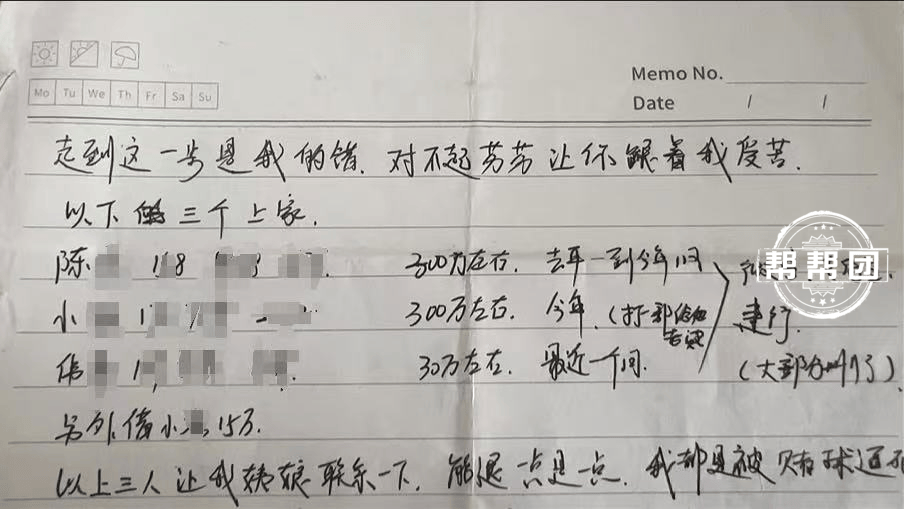 Mo Tu We Th Fr Sa Su
Memo No.
Date / /
走到这一步是我的错. 对不起芳芳让你跟着我受苦.
以下的三个上家.
陈 300万左右. 去年一到今年 间
小 300万左右. 今年.
伟 30万左右. 最近一个
建行.
(大部分 了)
帮帮团
另外借小 15万.
以上三人让我姨娘联系一下. 能退一点是一点. 我都是被赌球逼